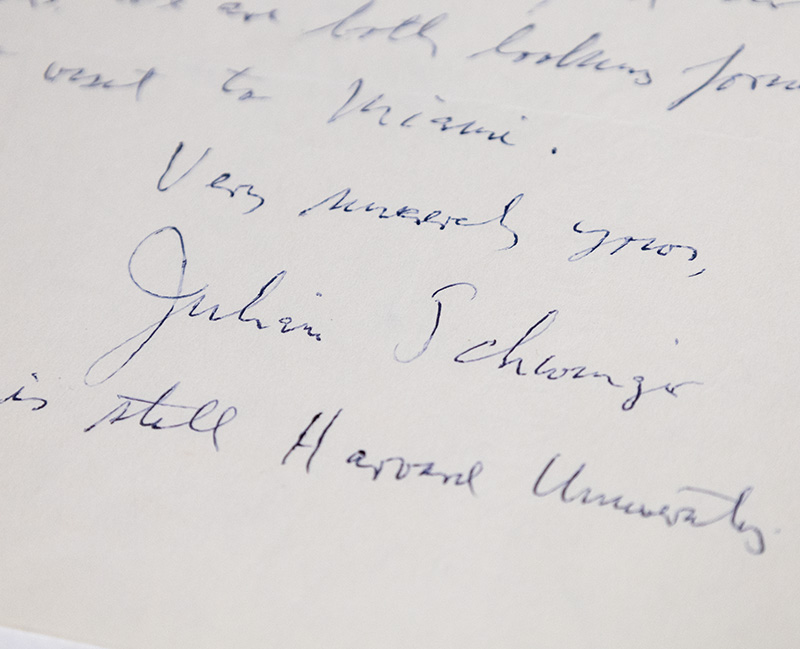 we are both looking forw
visit to Miami.
Very sincerely yours,
Julian Schwinger
is still Harvard University